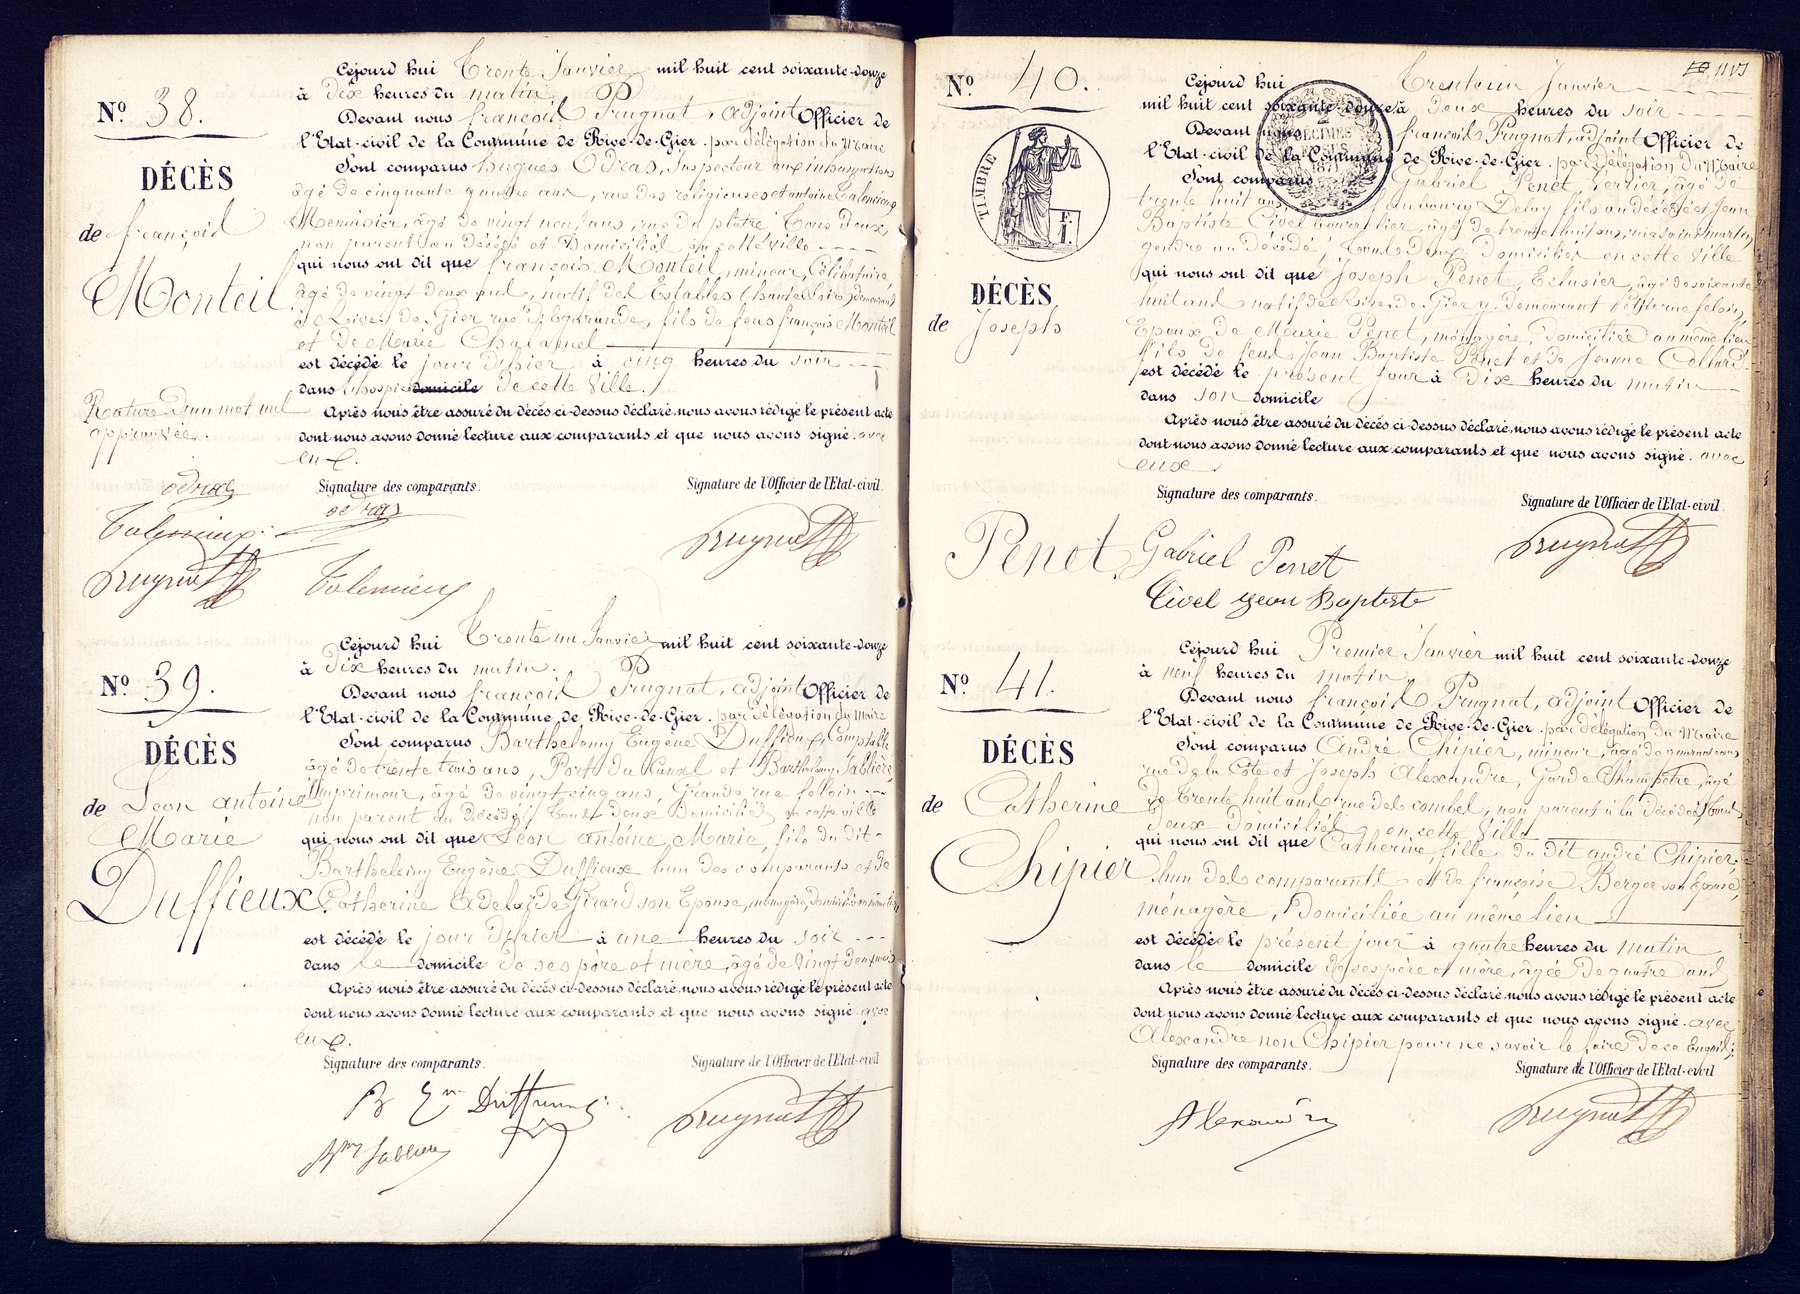 Nº 38.
DÉCÈS
de françois
Monteil
Rature d'un mot nul
approuvée.
odras
Prugnat
Cejourd hui Trente Janvier mil huit cent soixante-douze
à Dix heures du matin
Devant nous françois Prugnat, adjoint Officier de
l'Etat-civil de la Commune de Rive-de-Gier. par délégation du Maire
Sont comparus hugues Odras, Inspecteur aux inhumations
âgé de cinquante quatre ans, rue des religieuses et antoine
Menuisier, âgé de vingt neuf ans, rue du plâtre Tous deux,
non parent au décédé et Domiciliés en cette ville
qui nous ont dit que françois Monteil, mineur, Célibataire,
âgé de vingt deux ans, natif des Estables (haute Loire) demeurant
à Rive-de-Gier rue d'Egarande, fils de feus françois Monteil
et de Marie
est décédé le jour d'hier à cinq heures du soir
dans l'hospice domicile de cette Ville.
Après nous être assuré du décès ci-dessus déclaré, nous avons rédigé le présent acte
dont nous avons donné lecture aux comparants et que nous avons signé. avec
eux.
Signature des comparants. Signature de l'Officier de l'Etat-civil.
odras
Prugnat
Nº 39.
DÉCÈS
de Léon antoine
Marie
Duffieux.
Cejourd hui Trente un Janvier mil huit cent soixante-douze
à Dix heures du matin.
Devant nous françois Prugnat, adjoint Officier de
l'Etat-civil de la Commune de Rive-de-Gier. par délégation du Maire
Sont comparus Barthelemy Eugène Duffieux, Comptable
âgé de trente trois ans, Port du Canal et Barthelemy Sablière
Imprimeur, âgé de vingt cinq ans, Grande rue feloin
non parent au Décédé, Tous deux Domiciliés en cette ville
qui nous ont dit que Léon antoine Marie, fils du dit
Barthelemy Eugène Duffieux l'un des comparants et de
Catherine Adelaïde Girard son Epouse, menagère, domiciliés
est décédé le jour d'hier à une heures du soir
dans le domicile de ses père et mère, âgé de vingt deux mois
Après nous être assuré du décès ci-dessus déclaré, nous avons rédigé le présent acte
dont nous avons donné lecture aux comparants et que nous avons signé. avec
eux.
Signature des comparants. Signature de l'Officier de l'Etat-civil.
Prugnat
Nº 40.
TIMBRE
DÉCÈS
de Joseph
Penet
Cejourd hui Trente un Janvier
mil huit cent soixante-douze à deux heures du soir
Devant nous françois Prugnat, adjoint Officier de
l'Etat-civil de la Commune de Rive-de-Gier. par délégation du Maire
Sont comparus Gabriel Penet, verrier, âgé de
trente huit ans, faubourg Delay fils au décédé et Jean
Baptiste Civel bourrelier, âgé de trente huit ans, rue saint martin
gendre au Décédé, Tous Deux Domiciliés en cette ville
qui nous ont dit que Joseph Penet, Eclusier, âgé de soixante
huit ans natif de Rive-de-Gier y demeurant
Epoux de Marie Penet, ménagère, domiciliée au même lieu
fils de feus Jean Baptiste Penet et de Jeanne
est décédé le présent jour à Dix heures du matin
dans son domicile
Après nous être assuré du décès ci-dessus déclaré, nous avons rédigé le présent acte
dont nous avons donné lecture aux comparants et que nous avons signé. avec
eux
Signature des comparants. Signature de l'Officier de l'Etat-civil.
Gabriel Penet
Civel Jean Baptiste
Prugnat
Nº 41.
DÉCÈS
de Catherine
Chipier
Cejourd hui Premier Janvier mil huit cent soixante-douze
à neuf heures du matin
Devant nous françois Prugnat, adjoint Officier de
l'Etat-civil de la Commune de Rive-de-Gier. par délégation du Maire
Sont comparus André Chipier, mineur, âgé de quarante ans
rue de la Côte et Joseph Alexandre, Garde Champêtre, âgé
de Trente huit ans rue des combes, non parent à la Décédée, Tous
deux domiciliés en cette Ville
qui nous ont dit que Catherine, fille du dit andré Chipier
l'un des comparants et de françoise Berger son Epouse,
ménagère, Domiciliée au même lieu
est décédée le présent jour à quatre heures du matin
dans le domicile de ses père et mère, âgée de quatre ans
Après nous être assuré du décès ci-dessus déclaré, nous avons rédigé le présent acte
dont nous avons donné lecture aux comparants et que nous avons signé. avec
Alexandre non Chipier pour ne savoir le faire de ce Enquis;
Signature des comparants. Signature de l'Officier de l'Etat-civil
Alexandre
Prugnat